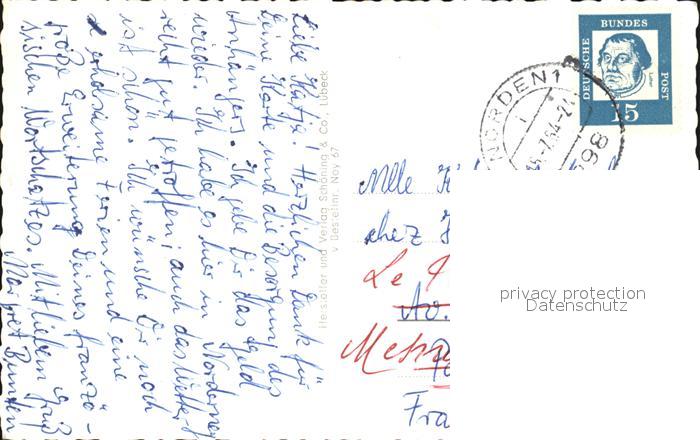 Liebe Katja! Herzlichen Dank für
Deine Karte und die Besorgung des
Anhängers. Ich gebe Dir das Geld
wieder. Ich habe es hier in Norderney
recht gut getroffen; auch das Wetter
ist schön. Ich wünsche Dir noch
erholsame Ferien und eine
große Erweiterung Deines französi-
sischen Wortschatzes. Mit lieben Gruß
Margret Bunten
Hersteller und Verlag Schöning & Co., Lübeck
Bestellnr. Noy 67
DEUTSCHE BUNDES POST
Luther
15
NORDEN 1
298
Mlle
chez
Le
Av.
Fra
privacy protection
Datenschutz